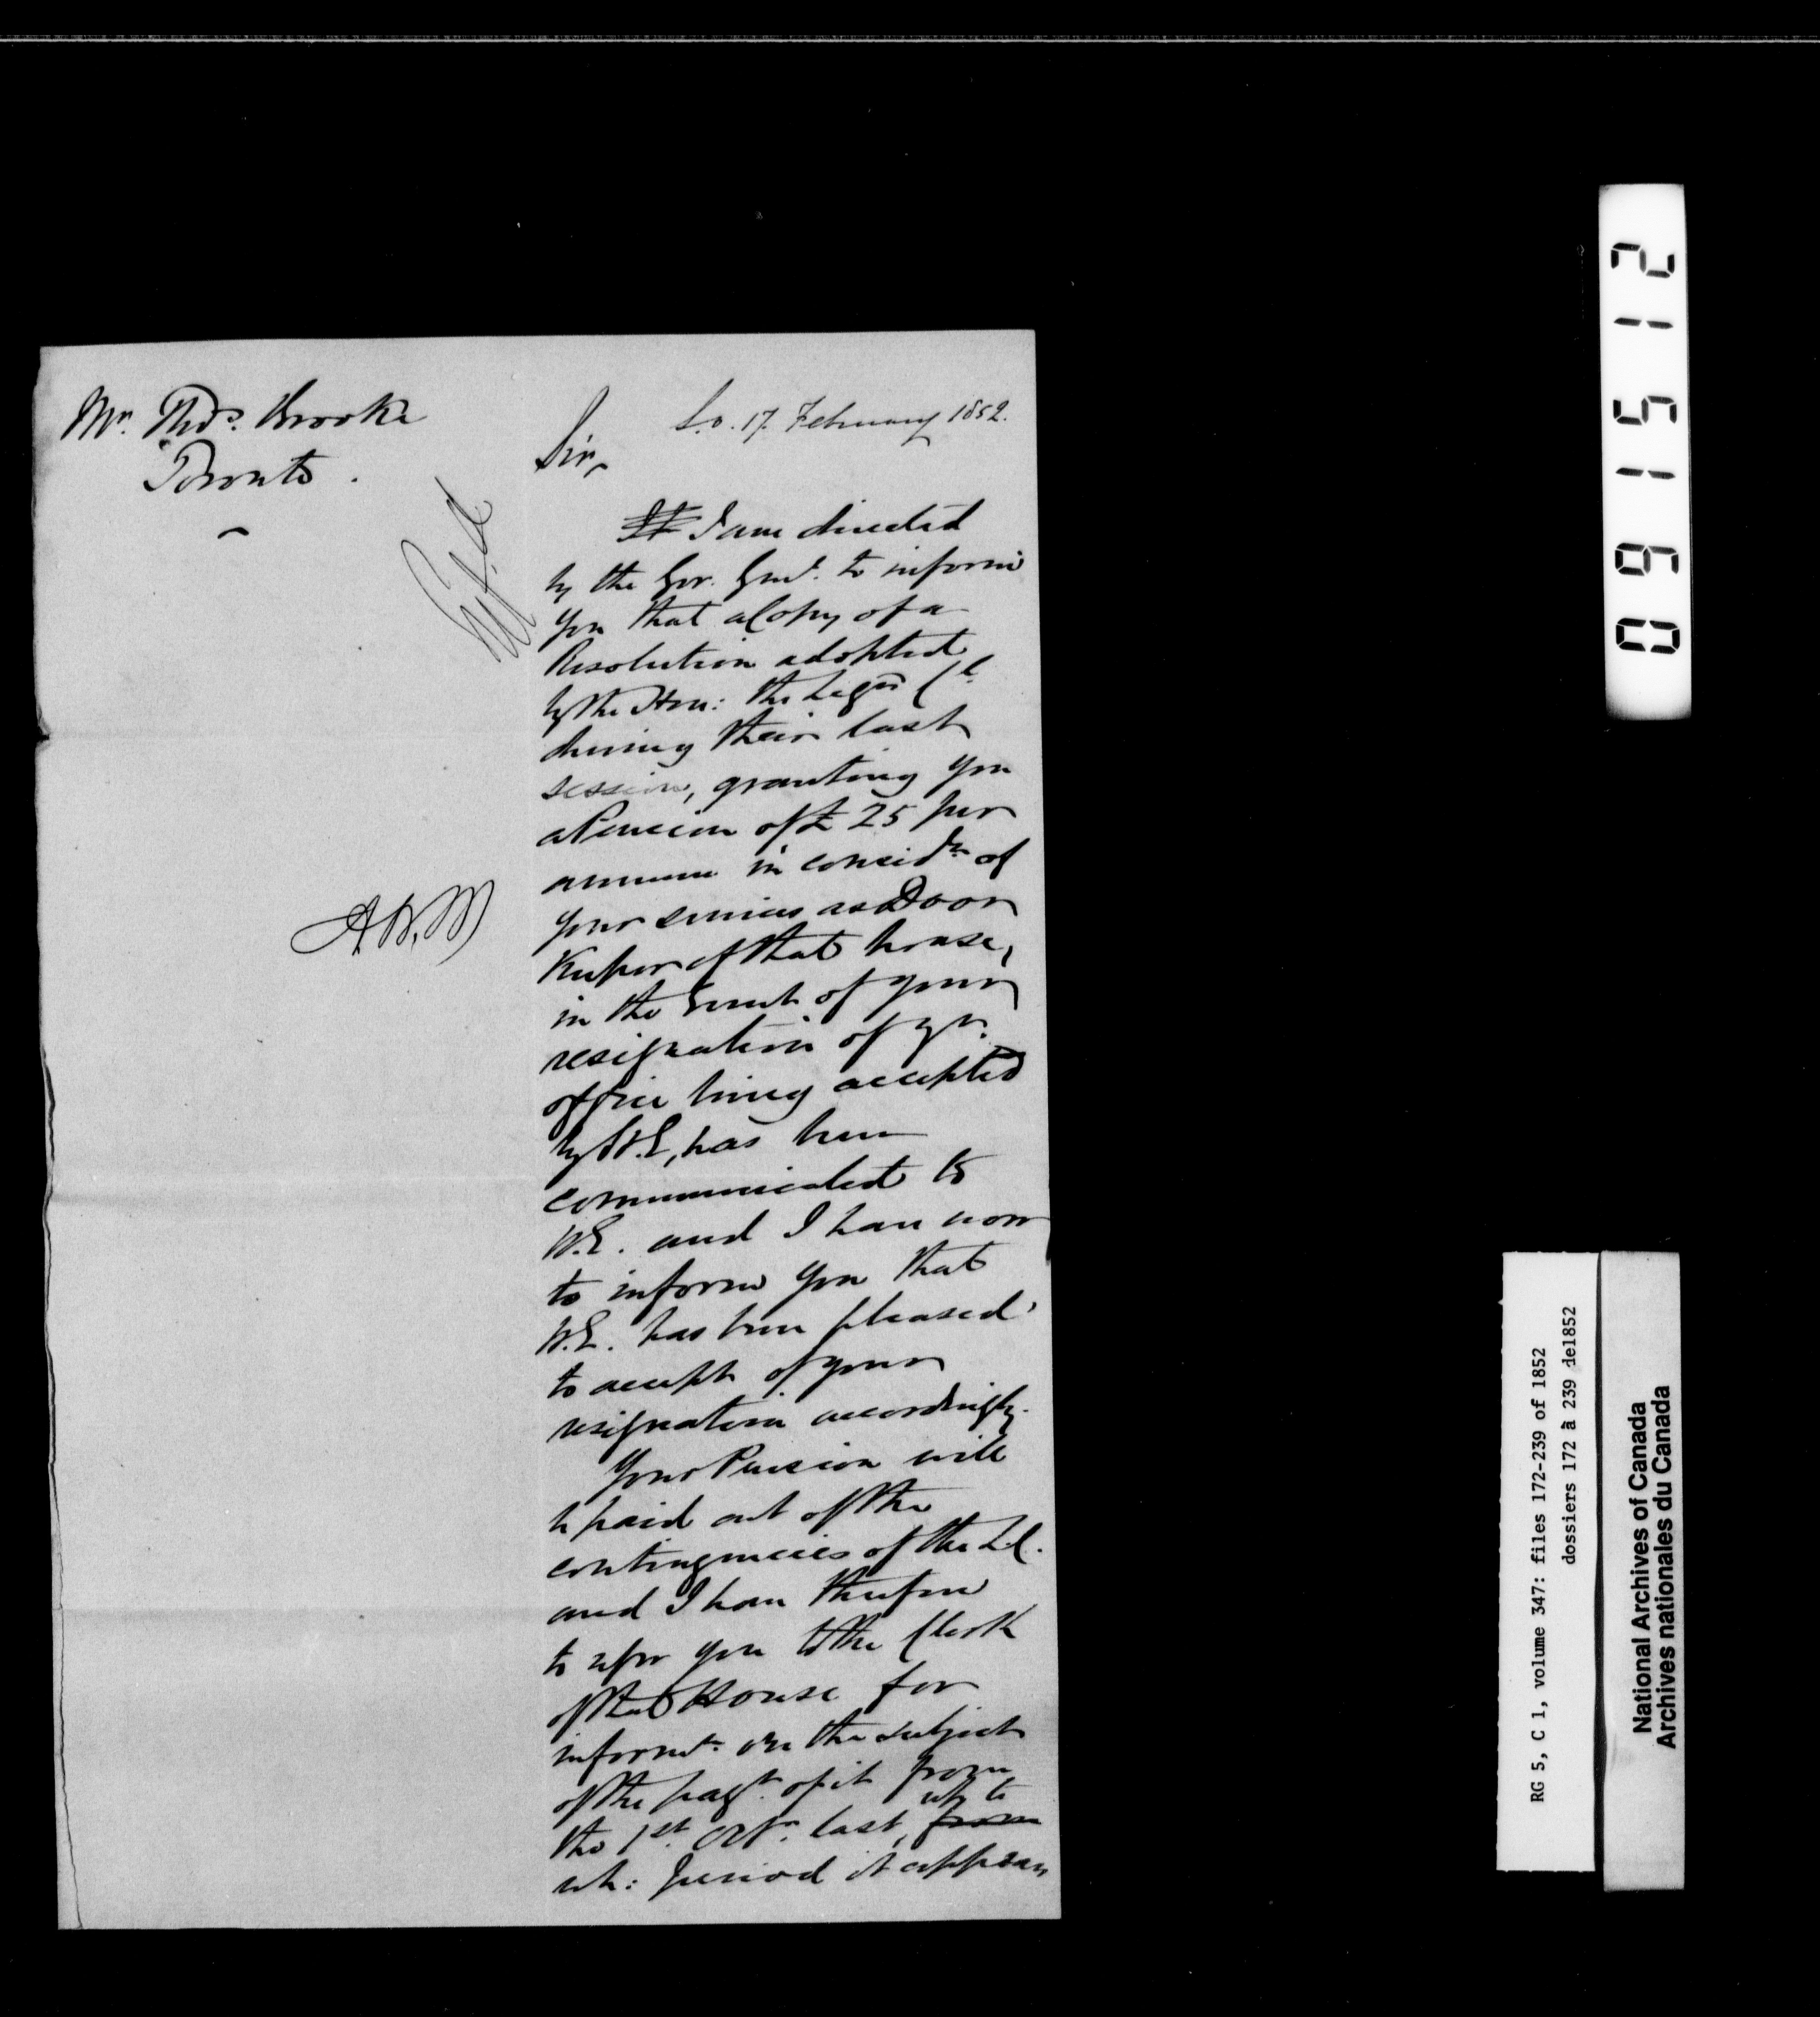 Mr. Thos. Brooke
Toronto.
S.O. 17 February 1852.
Sir,
It I am directed
by the Gov. Genl. to inform
you that a Copy of a
Resolution adopted
by the Hon: the Legve Cl.
during their last
session, granting you
a Pension of £25 per
annum in considn of
your services as Door
Keeper of that house,
in the Event of your
resignation of yr.
office being accepted
by H.E, has been
communicated to
H.E. and I have now
to inform you that
H.E. has been pleased
to accept of your
resignation accordingly.
Your Pension will
be paid out of the
contingencies of the L.C.
and I have therefore
to refer you to the Clerk
of that House for
informn on the subject
of the payt. of it from
the 1st. Octr. last, from up to
wh: period it appears
091512
RG 5, C 1, volume 347: files 172-239 of 1852
dossiers 172 à 239 de1852
National Archives of Canada
Archives nationales du Canada